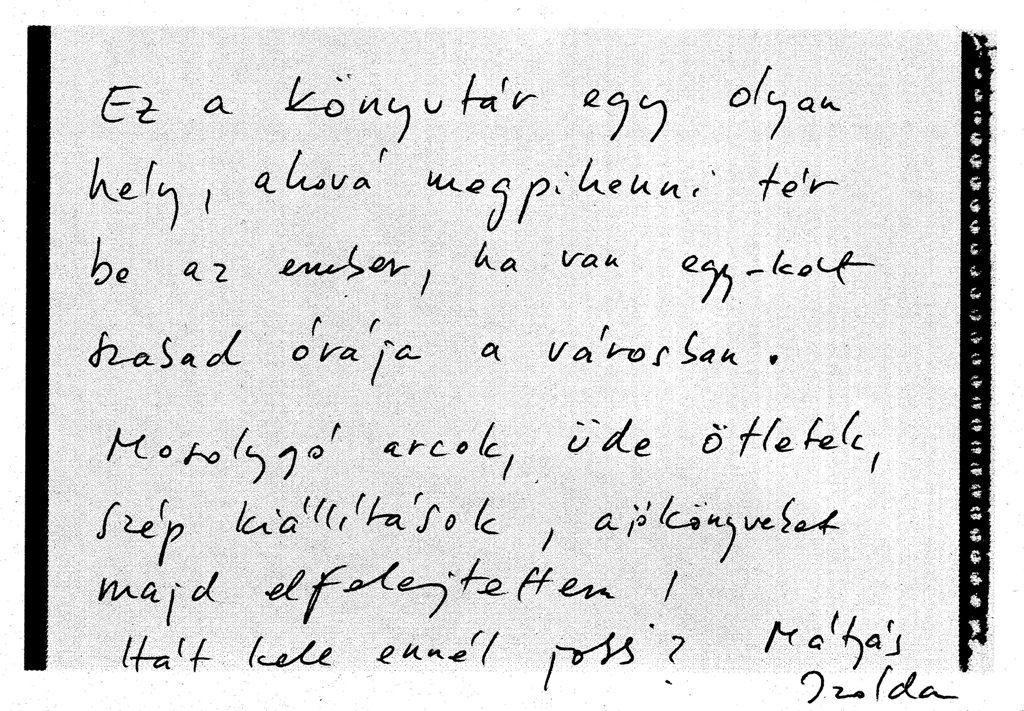 Ez a könyvtár egy olyan
hely, ahová megpihenni tér
be az ember, ha van egy-két
szabad órája a városban.
Mosolygó arcok, üde ötletek,
szép kiállítások, a jó könyveket
majd elfelejtettem!
Hát kell ennél jobb? Mátyás
Izolda